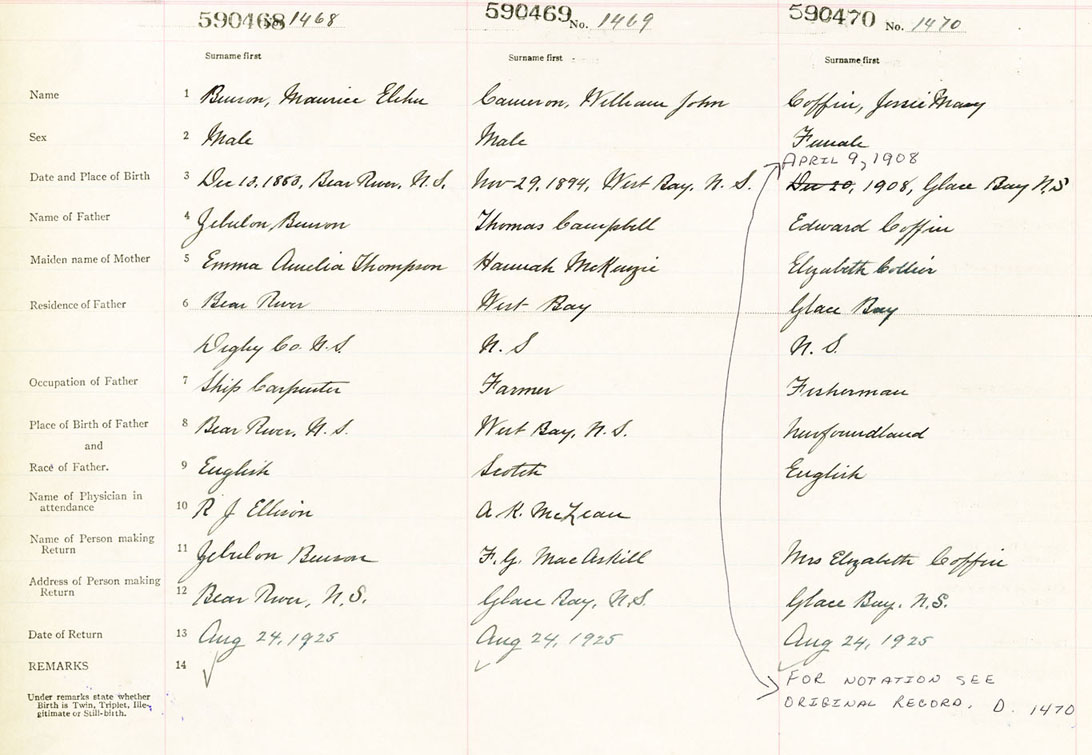 590468 No. 1468 590469 No. 1469 590470 No. 1470
Surname first Surname first Surname first
Name 1 Benson, Maurice Elihu Cameron, William John Coffin, Jessie Mary
Sex 2 Male Male Female
APRIL 9, 1908
Date and Place of Birth 3 Dec 13, Bear River, N.S. Nov 29, 1894, West Bay, N. S. Dec 20, 1908, Glace Bay N.S
Name of Father 4 Zebulon Benson Thomas Campbell Edward Coffin
Maiden name of Mother 5 Emma Amelia Thompson Hannah McKenzie Elizabeth Collier
Residence of Father 6 Bear River West Bay Glace Bay
Digby Co. N.S. N. S N. S.
Occupation of Father 7 Ship Carpenter Farmer Fisherman
Place of Birth of Father 8 Bear River, N. S. West Bay, N. S. Newfoundland
and
Race of Father. 9 English Scotch English
Name of Physician in
attendance 10 R J Ellison A. K. McLean
Name of Person making
Return 11 Zebulon Benson F. G. MacAskill Mrs Elizabeth Coffin
Address of Person making
Return 12 Bear River, N.S. Glace Bay, N.S. Glace Bay, N.S.
Date of Return 13 Aug 24, 1925 Aug 24, 1925 Aug 24, 1925
REMARKS 14
FOR NOTATION SEE
ORIGINAL RECORD. D. 1470
Under remarks state whether
Birth is Twin, Triplet, Ille-
gitimate or Still-birth.